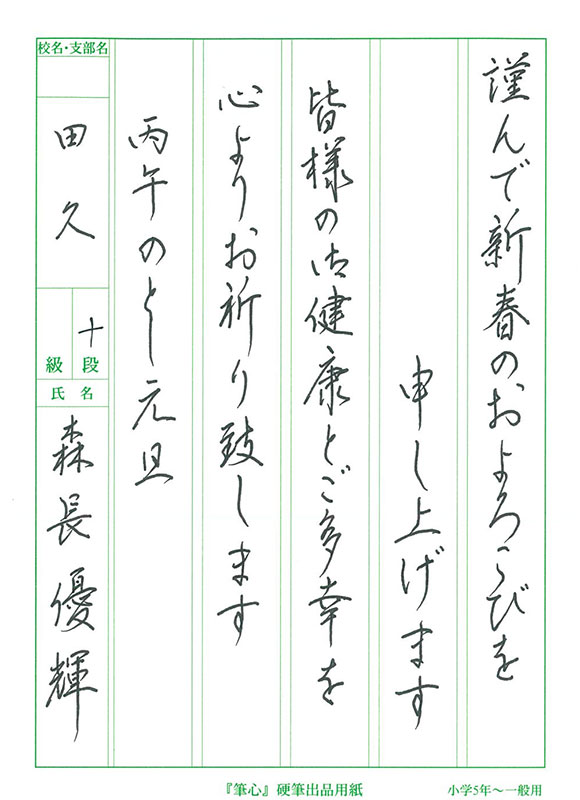 謹んで新春のおよろこびを
申し上げます
皆様の御健康とご多幸を
心よりお祈り致します
丙午のとし元旦
校名・支部名
田久
十段
級
氏名
森長優輝
『筆心』硬筆出品用紙
小学5年〜一般用